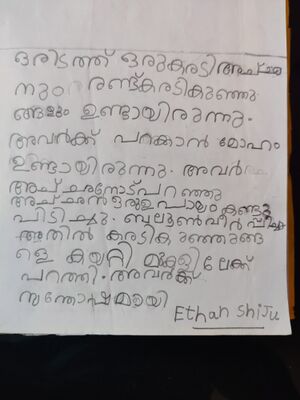 ഒരിടത്ത് ഒരുകരടി അച്ഛ
നും രണ്ട്കരടികുഞ്ഞു
ങ്ങളും ഉണ്ടായിരുന്നു.
അവർക്ക് പറക്കാൻ മോഹം
ഉണ്ടായിരുന്നു. അവർ
അച്ഛനോട്പറഞ്ഞു
അച്ഛൻ ഒരുഉപായം കണ്ടു
പിടിച്ചു. ബലൂൺ വീർപ്പിച്ചു
അതിൽ കരടികുഞ്ഞുങ്ങ
ളെ കയറ്റി മുകളിലേക്ക്
പറത്തി. അവർക്ക്
സന്തോഷമായി
Ethan Shiju